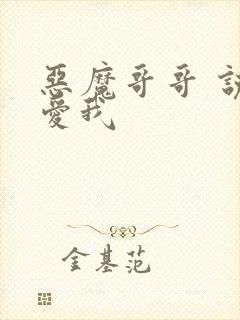 惡魔哥哥
愛我
金基范